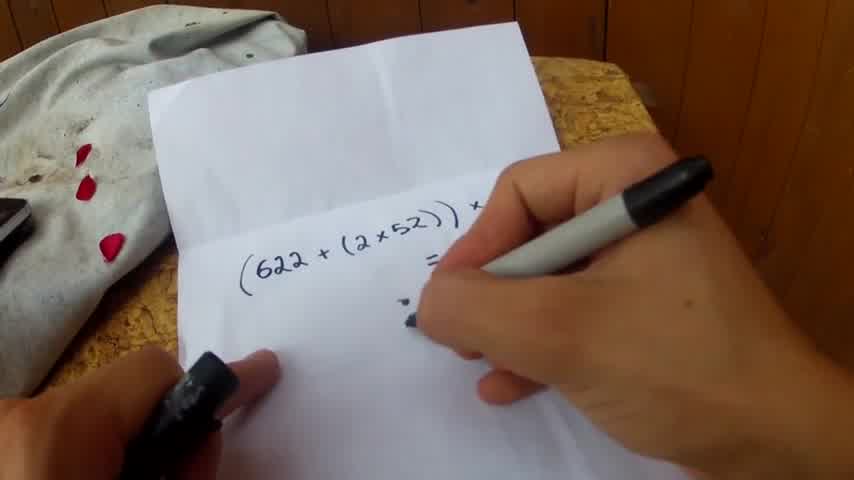 (622 + (2 × 52)) ×
=